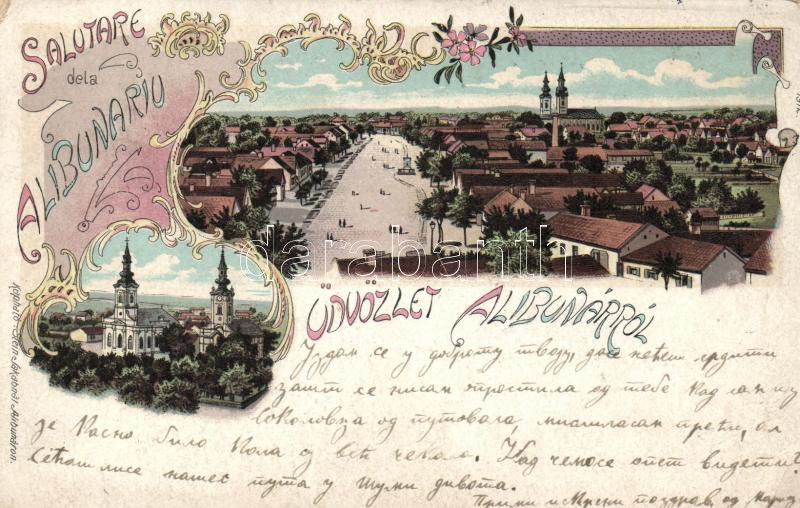 SALUTARE
dela
ALIBUNARIU
ÜDVÖZLET ALIBUNÁRRÓL
darabanth
Уздам се у доброту твоју, да се нећеш срдити
зашт се нисам опростила од тебе кад сам из
Соколовца од путовала, мислиласам прећи, ал
је касно било кола су већ чекала. Кад ћемосе опет видети?
Сећаш лисе нашег пута у шуми дивота.
Прими и поздрав од